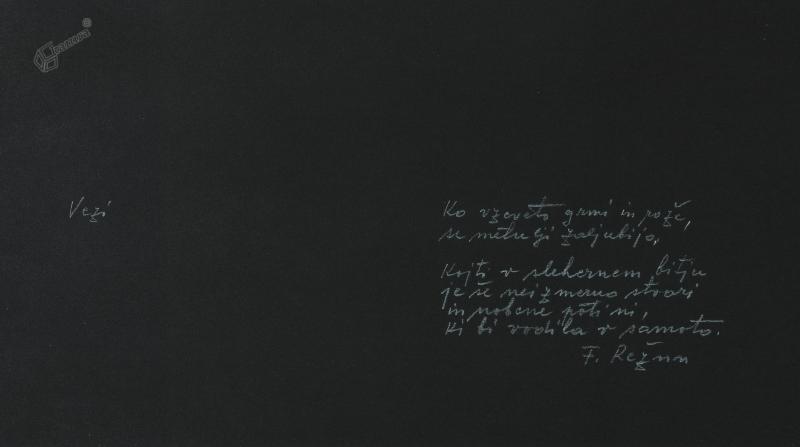 Kamra
Vezi
Ko vzcveto grmi in rože,
se metulji zaljubijo,
Kajti v slehernem bitju
je še neizmerno stvari
in nobene poti ni,
ki bi vodila v samoto.
F. Režun